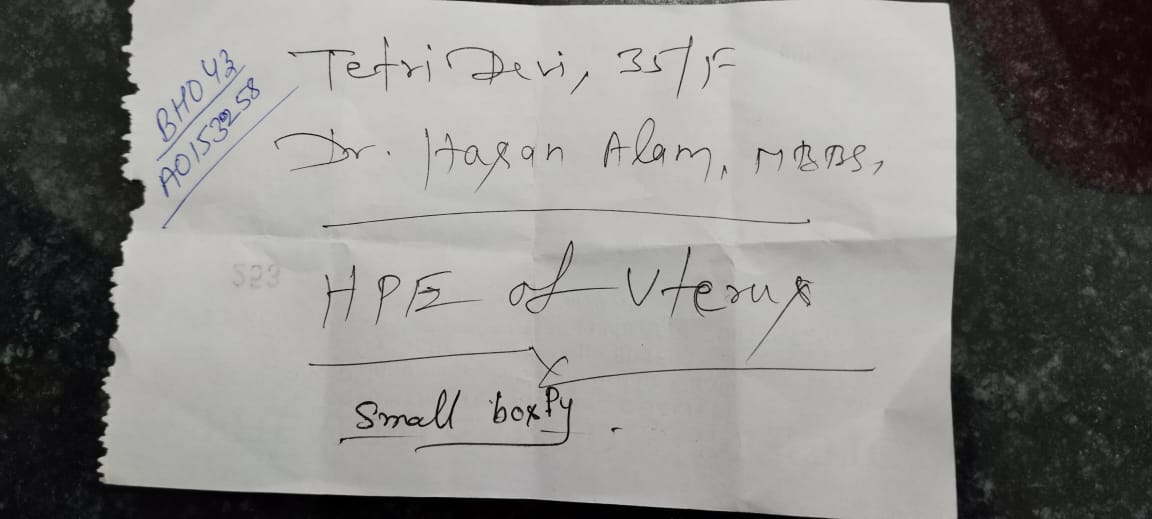 BHO43
A0153258
Tetri Devi, 35/F
Dr. Hasan Alam, MBBS,
HPE of Uterus
Small box Py.